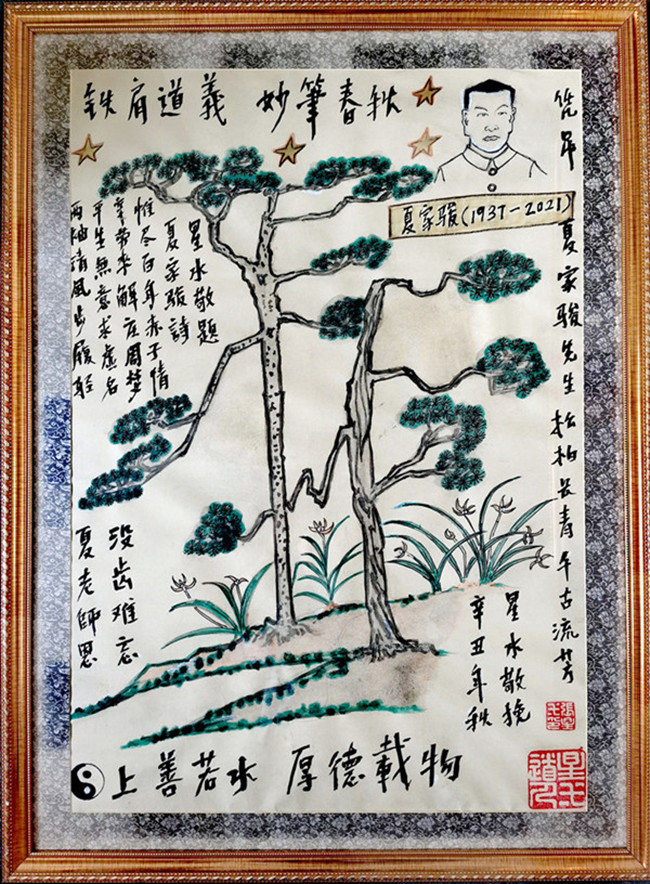 铁肩道義 妙筆春秋
夏家骏(1937-2021)
凭吊 夏家骏先生 松柏長青 千古流芳
两袖清風步履轻
平生無意求虚名
辛劳来解庄周梦
惟尽百年赤子情
夏家骏詩
星水敬題
夏老師恩
没齿难忘
辛丑年秋
星水敬挽
上善若水 厚德載物